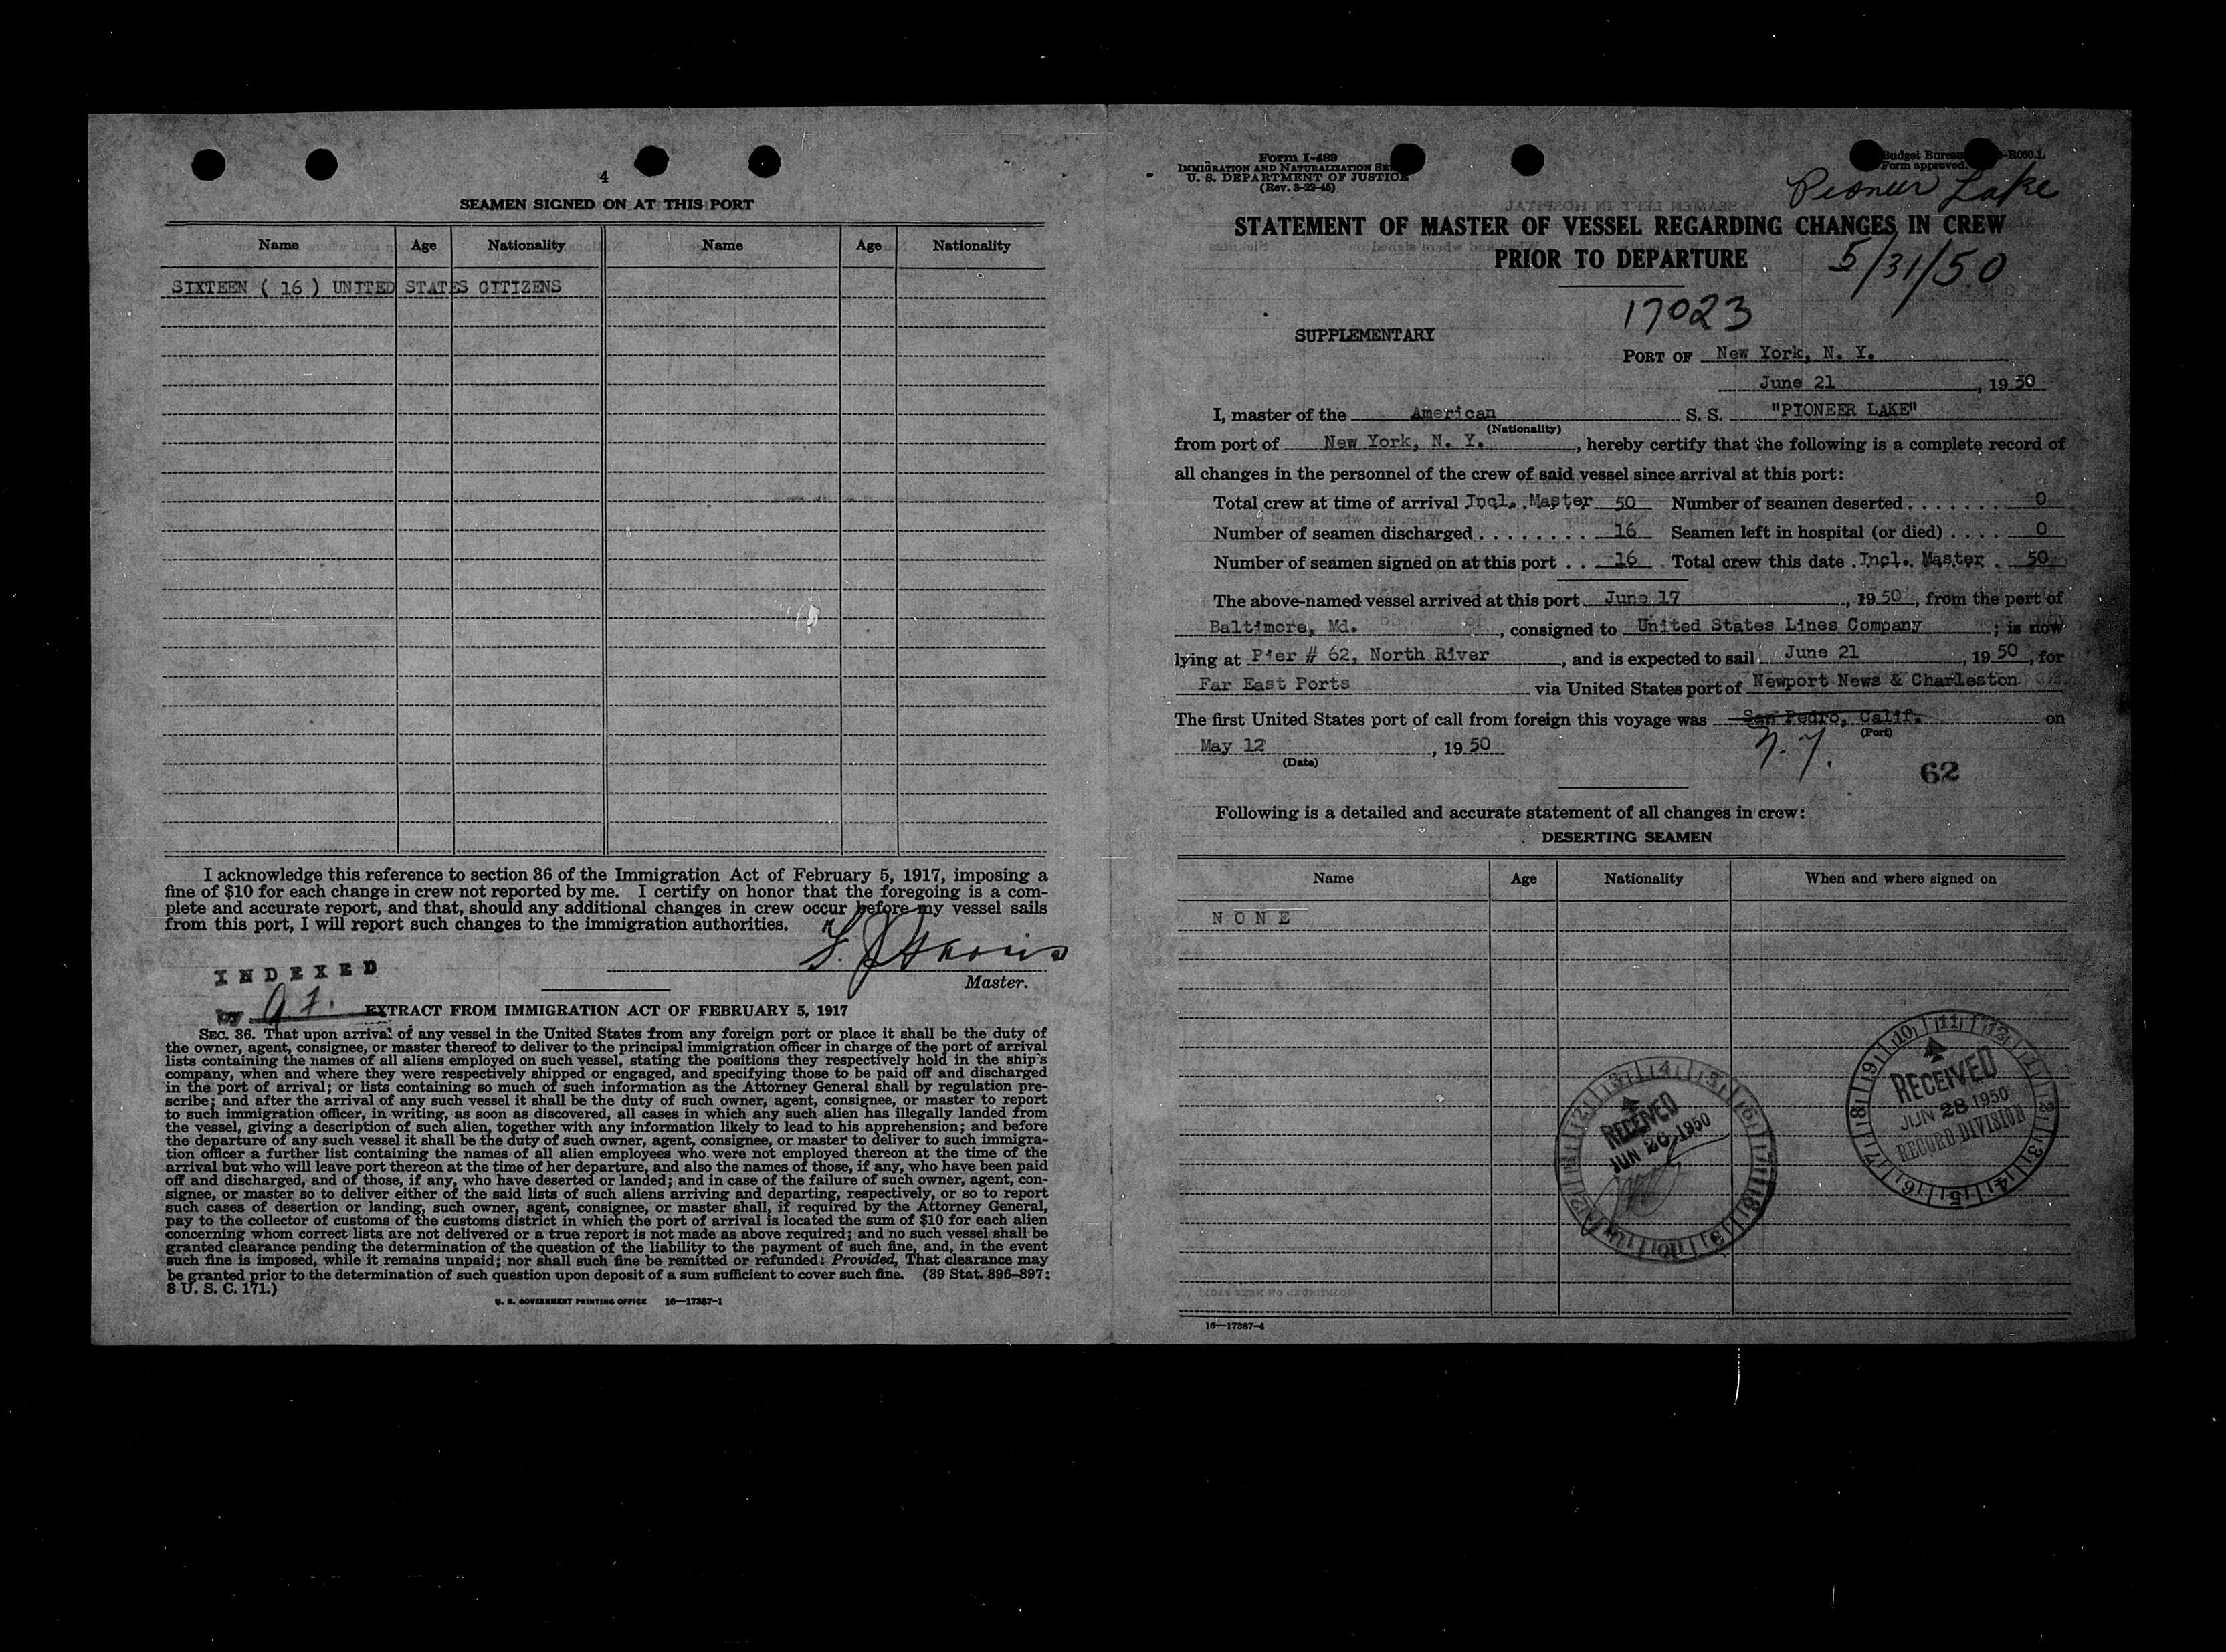 4
SEAMEN SIGNED ON AT THIS PORT
Name Age Nationality Name Age Nationality
SIXTEEN ( 16 ) UNITED STATES CITIZENS
I acknowledge this reference to section 36 of the Immigration Act of February 5, 1917, imposing a
fine of $10 for each change in crew not reported by me. I certify on honor that the foregoing is a com-
plete and accurate report, and that, should any additional changes in crew occur before my vessel sails
from this port, I will report such changes to the immigration authorities.
Master.
INDEXED
by
EXTRACT FROM IMMIGRATION ACT OF FEBRUARY 5, 1917
SEC. 36. That upon arrival of any vessel in the United States from any foreign port or place it shall be the duty of
the owner, agent, consignee, or master thereof to deliver to the principal immigration officer in charge of the port of arrival
lists containing the names of all aliens employed on such vessel, stating the positions they respectively hold in the ship's
company, when and where they were respectively shipped or engaged, and specifying those to be paid off and discharged
in the port of arrival; or lists containing so much of such information as the Attorney General shall by regulation pre-
scribe; and after the arrival of any such vessel it shall be the duty of such owner, agent, consignee, or master to report
to such immigration officer, in writing, as soon as discovered, all cases in which any such alien has illegally landed from
the vessel, giving a description of such alien, together with any information likely to lead to his apprehension; and before
the departure of any such vessel it shall be the duty of such owner, agent, consignee, or master to deliver to such immigra-
tion officer a further list containing the names of all alien employees who were not employed thereon at the time of the
arrival but who will leave port thereon at the time of her departure, and also the names of those, if any, who have been paid
off and discharged, and of those, if any, who have deserted or landed; and in case of the failure of such owner, agent, con-
signee, or master so to deliver either of the said lists of such aliens arriving and departing, respectively, or so to report
such cases of desertion or landing, such owner, agent, consignee, or master shall, if required by the Attorney General,
pay to the collector of customs of the customs district in which the port of arrival is located the sum of $10 for each alien
concerning whom correct lists are not delivered or a true report is not made as above required; and no such vessel shall be
granted clearance pending the determination of the question of the liability to the payment of such fine, and, in the event
such fine is imposed, while it remains unpaid; nor shall such fine be remitted or refunded: Provided, That clearance may
be granted prior to the determination of such question upon deposit of a sum sufficient to cover such fine. (39 Stat. 896–897;
8 U. S. C. 171.)
U. S. GOVERNMENT PRINTING OFFICE 16—17387-1
Form I-489
IMMIGRATION AND NATURALIZATION
U. S. DEPARTMENT OF JUSTICE
(Rev. 3-22-45)
Budget Bureau
Form approved.
Pioneer Lake
STATEMENT OF MASTER OF VESSEL REGARDING CHANGES IN CREW
PRIOR TO DEPARTURE
5/31/50
17023
SUPPLEMENTARY
PORT OF New York, N. Y.
June 21, 1950
I, master of the American S. S. "PIONEER LAKE"
(Nationality)
from port of New York, N. Y., hereby certify that the following is a complete record of
all changes in the personnel of the crew of said vessel since arrival at this port:
Total crew at time of arrival Incl. Master 50 Number of seamen deserted . . . . . . . 0
Number of seamen discharged . . . . . . . . 16 Seamen left in hospital (or died) . . . . 0
Number of seamen signed on at this port . . 16 Total crew this date . Incl. Master . 50
The above-named vessel arrived at this port June 17, 1950, from the port of
Baltimore, Md., consigned to United States Lines Company; is now
lying at Pier # 62, North River, and is expected to sail June 21, 1950, for
Far East Ports via United States port of Newport News & Charleston
The first United States port of call from foreign this voyage was San Pedro, Calif. on
(Port)
N.Y.
May 12, 1950
(Date)
62
Following is a detailed and accurate statement of all changes in crew:
DESERTING SEAMEN
Name Age Nationality When and where signed on
NONE
RECEIVED
JUN 26 1950
RECEIVED
JUN 28 1950
RECORD DIVISION
16—17387-4